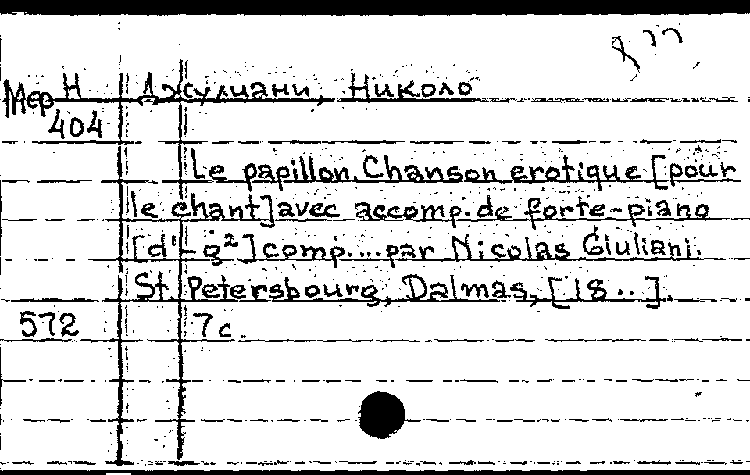 Мер Н Джулиани, Николо
404
Le papillon. Chanson erotique [pour
le chant] avec accomp. de forte-piano
[d'-g²] comp....par Nicolas Giuliani.
St. Petersbourg, Dalmas, [18..].
572 7с.